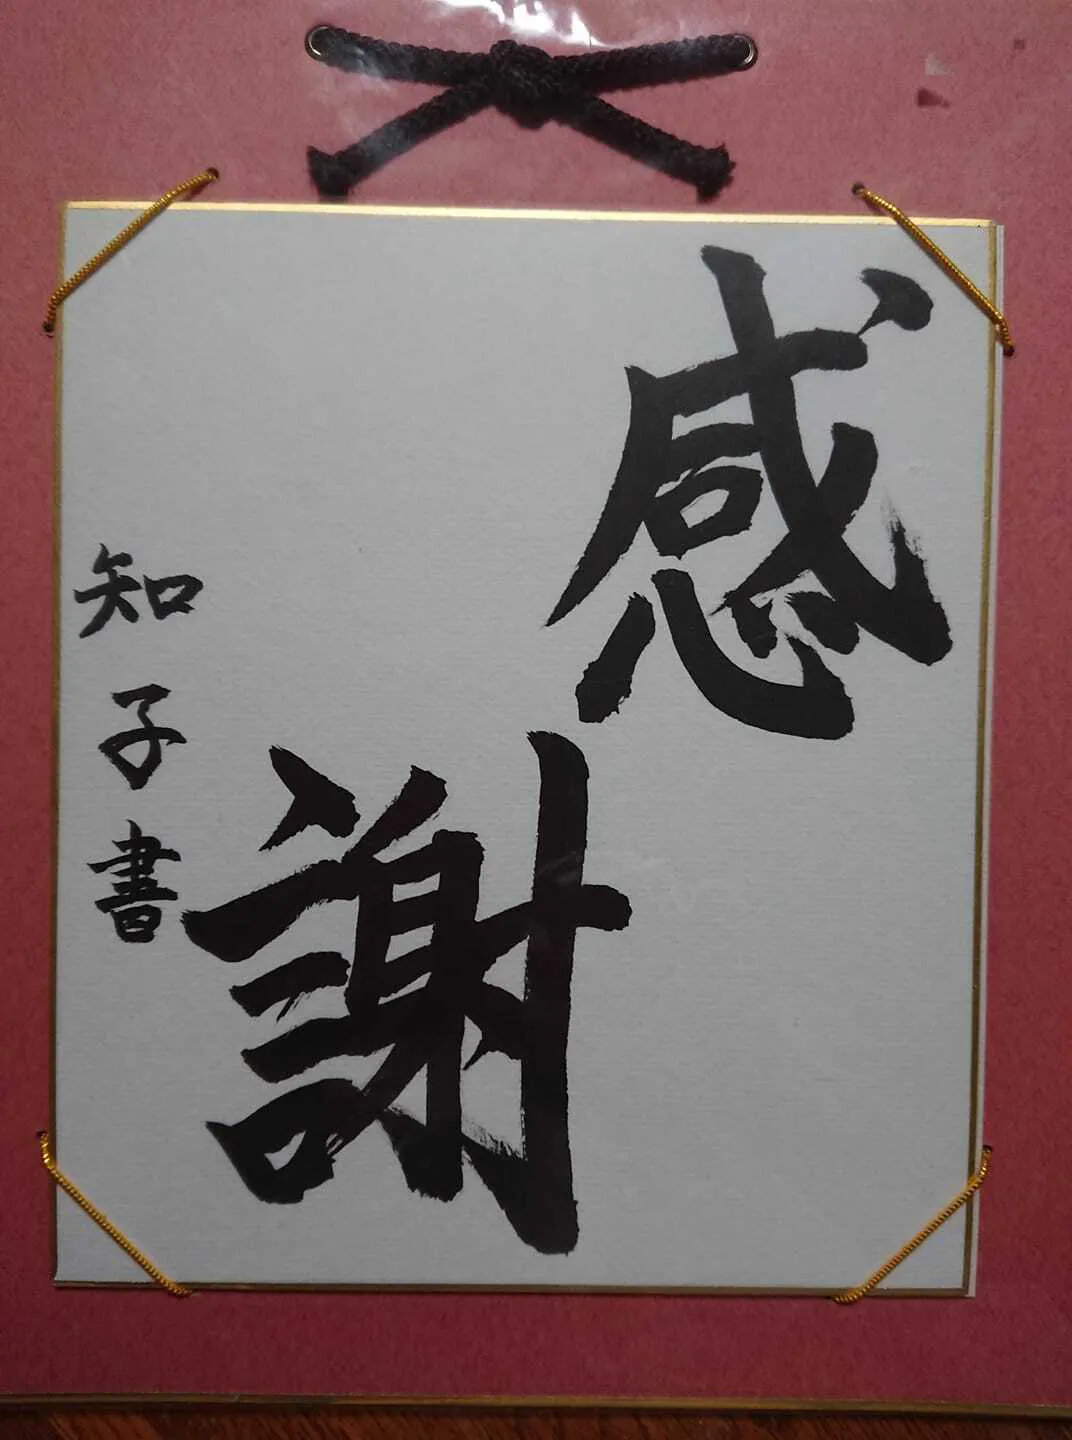 感謝
知子書